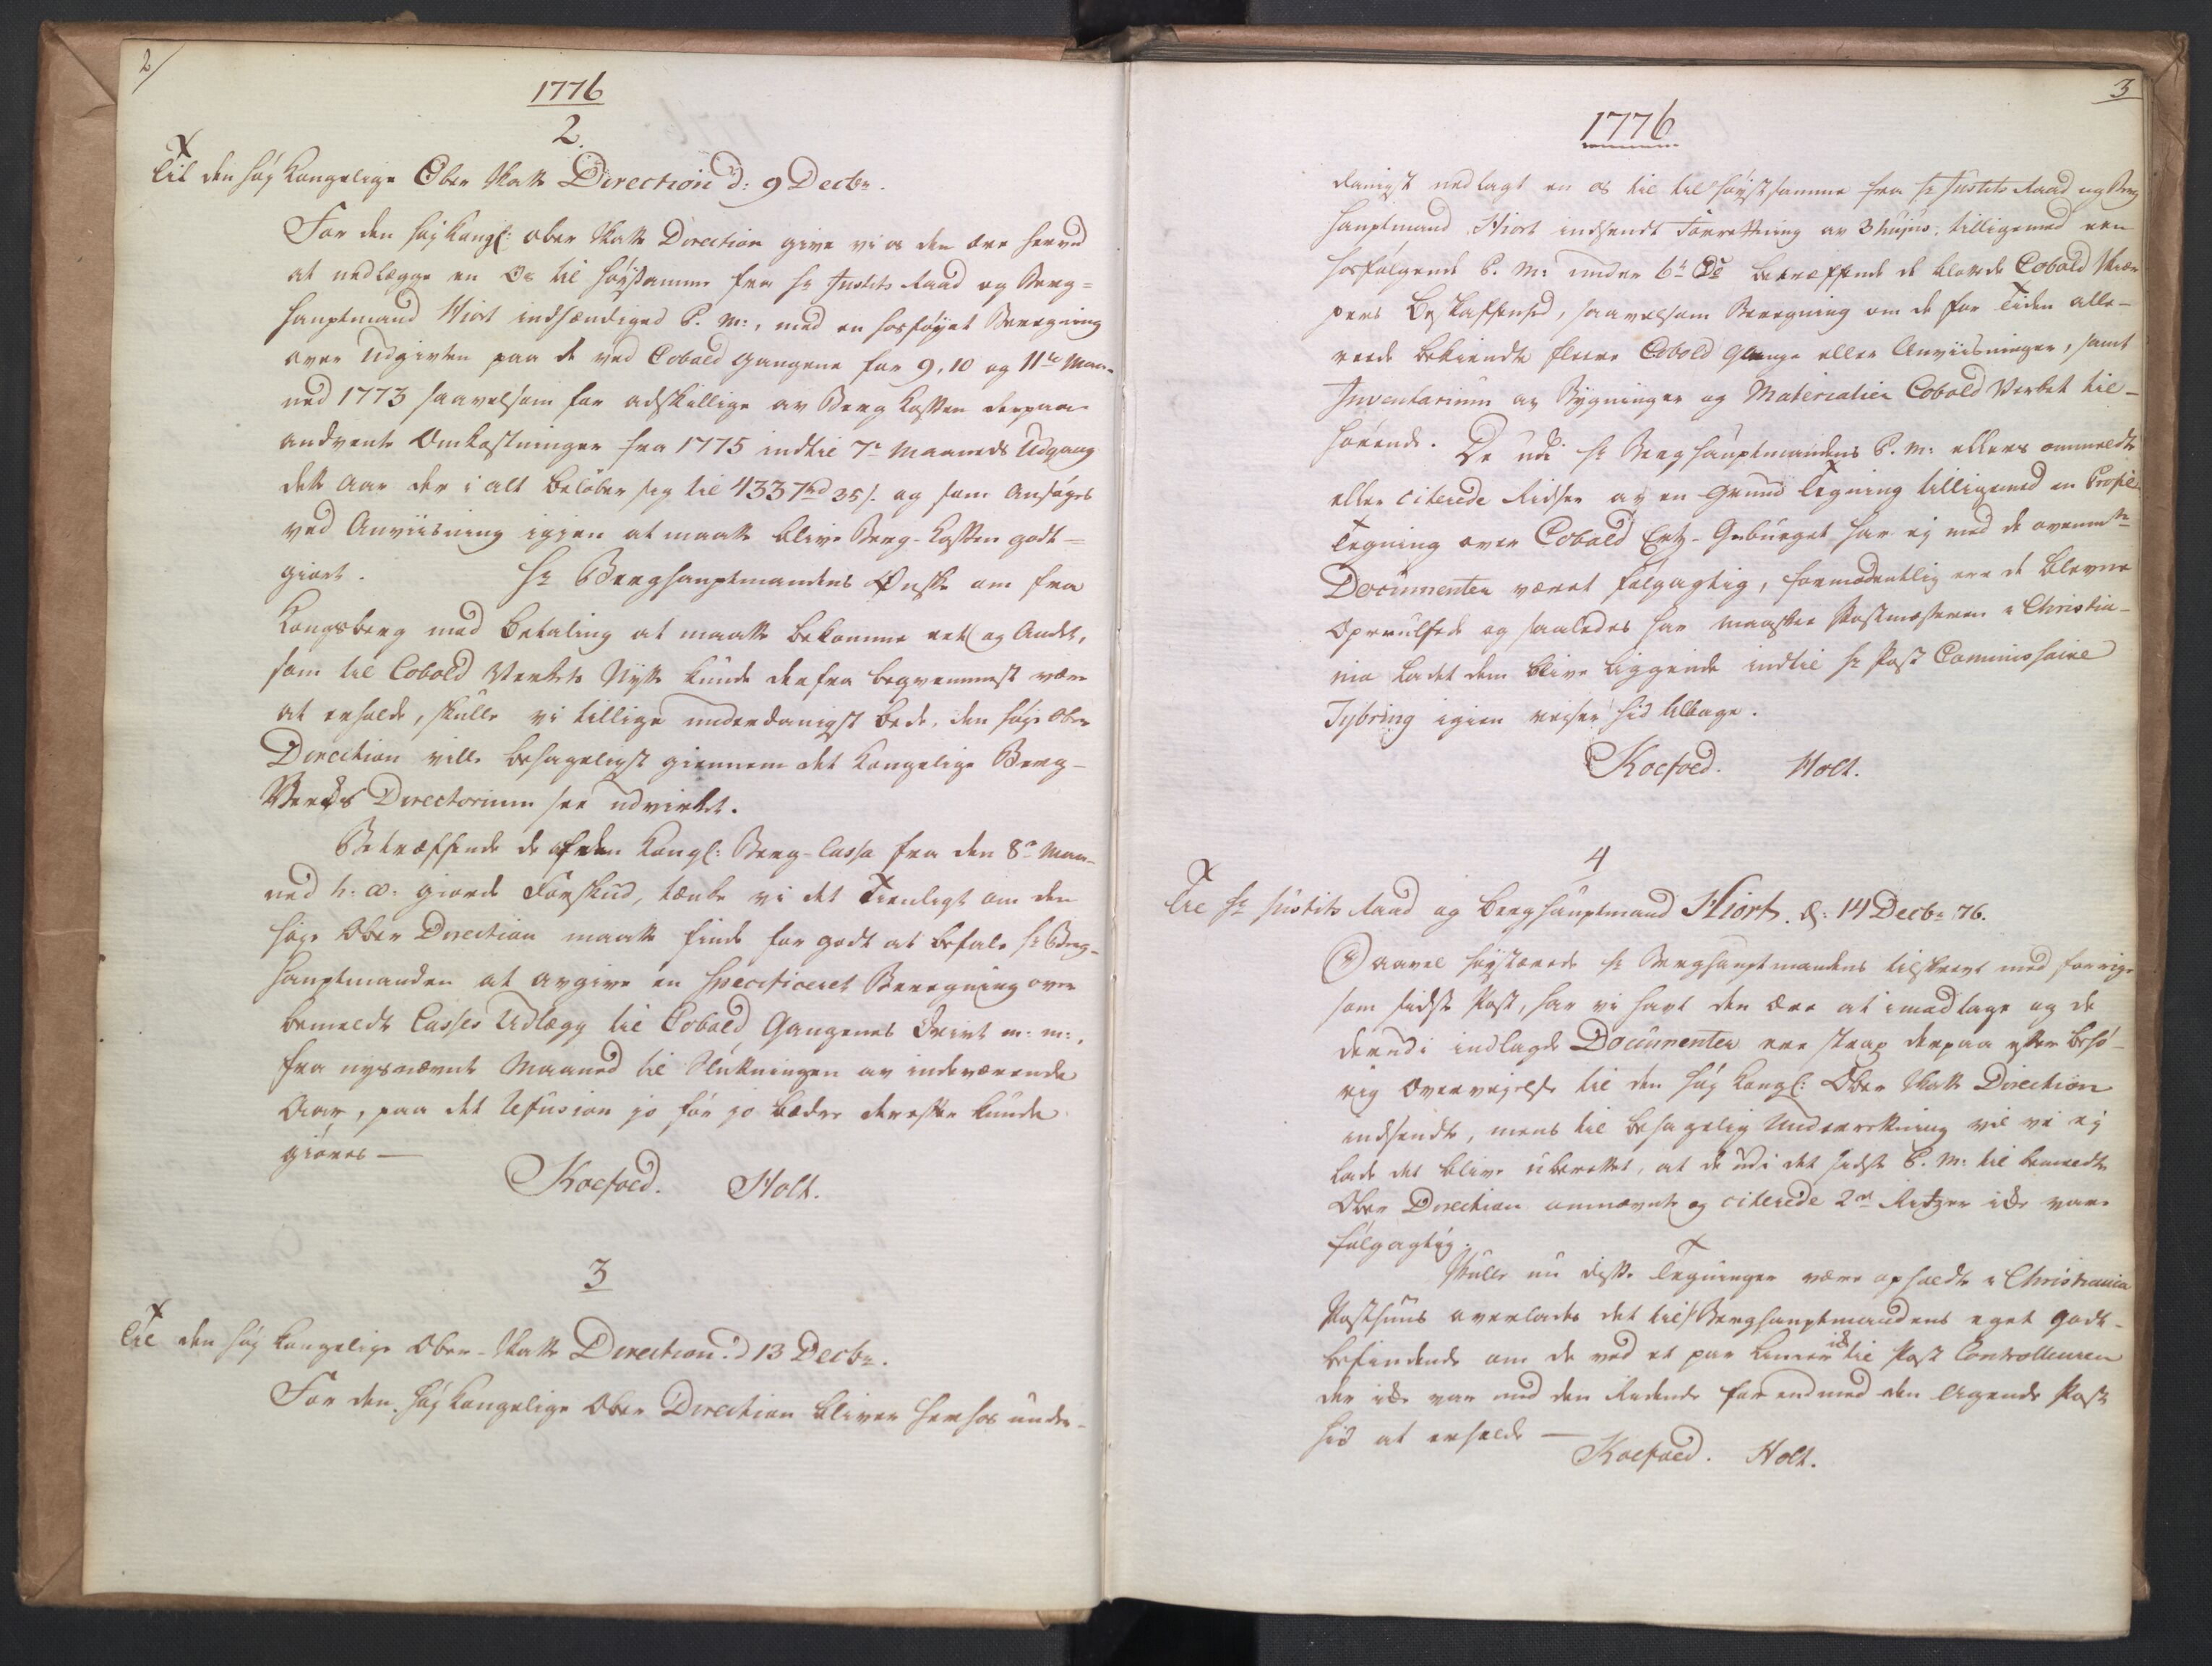 2/
1776
2.
Til den høy Kongelige Ober Skatte Direction d: 9 Decbr.
For den høy Kongl: Ober Skatte Direction give vi os den ære herved
at nedlægge en Os til Høystsamme fra Hr Justits Raad og Berg=
hauptmand Hiort indhændiged P. M:, med en hosføyet Beregning
over Udgivten paa de ved Cobold Gangene for 9, 10 og 11te Maa-
ned 1773 saavelsom for adskillige av Berg Kassen derpaa
andvente Omkostninger fra 1775 indtil 7de Maaneds Udgang
dette Aar der i alt beløber sig til 4337 rd 35 s. og som Ansøges
ved Anviisning igjen at maatte blive Berg-Kassen godt=
giort. Hr Berghauptmandens Ønske om fra
Kongsberg mod Betaling at maatte bekomme eet og Andet,
som til Cobold Verkets Nytte kunde derfra beqvemmest være
at erholde, skulle vi tillige underdanigst bede, den høye Ober
Direction ville behageligst giennem det Kongelige Berg-
Verks Directorium see udvirket.
Betræffende de af den Kongl: Berg-Cassa fra den 8de Maa-
ned h: a: giorde Forskud, tænke vi det Tienligt om den
høye Ober Direction maatte finde for godt at befale Hr Berg-
hauptmanden at avgive en specificeret Beregning over
bemeldte Casses Udlægg til Cobold Gangenes Drivt m: m:,
fra nysnævnte Maaned til Slutningen av indeværende
Aar, paa det Refusion jo før jo bædre derefter kunde
giøres —
Koefoed. Holt.
3
Til den høy Kongelige Ober-Skatte Direction d 13 Decbr.
For den høy Kongelige Ober Direction bliver herhos under-
3
1776
danigst nedlagt en os til til høystsamme fra Hr Justits Raad og Berg
hauptmand Hiort indsendt Forrettning av 3 hujus, tilligemed een
hosfølgende P. M: under 6te Do betræffende de blaae Cobold Skiær
pers Beskaffenhed, saavelsom Beregning om de for Tiden alle-
reede bekiendte fleere Cobold Gange eller Anviisninger, samt
Inventarium av Bygninger og Materialier Cobold Verket til-
hørende. De udi Hr Berghauptmandens P. M: ellers ommeldte
eller citerede Ridser av en Grund Tegning tilligemed en Profil-
Tegning over Cobold Ertz-Gebürget har ej med de ovenmte
Documenter været følgagtig, formodentlig ere de blevne
og saaledes har maaskee Postmesteren i Christia-
nia ladet dem blive liggende indtil Hr Post Commissaire
Tybring igien reiser hid tilbage.
Koefoed. Holt.
4
Til Hr Justits Raad og Berghauptmand Hiort. d: 14 Decbr 76.
Saavel høystærede Hr Berghauptmandens tilskrevt med forrige
som sidste Post, har vi havt den ære at imodtage og de
derudi indlagde Documenter ere strax derpaa efter behø-
rig Overvejelse til den høy Kongl: Ober Skatte Direction
indsendte, mens til behagelig Underrettning vil vi ej
lade det blive uberettet, at de udi det sidste P. M: til bemeldte
Ober Direction omnævnte og citerede 2de Ritzer icke vare
følgagtig.
Skulle nu disse Tegninger være opholdte i Christiania
Posthuus overlades det til Hr Berghauptmandens eget godt-
befindende om de ved et par Linier icke til Post Controlleuren
der icke var med den Ridende for end med den Agende Post
hid at erholde —
Koefoed. Holt.